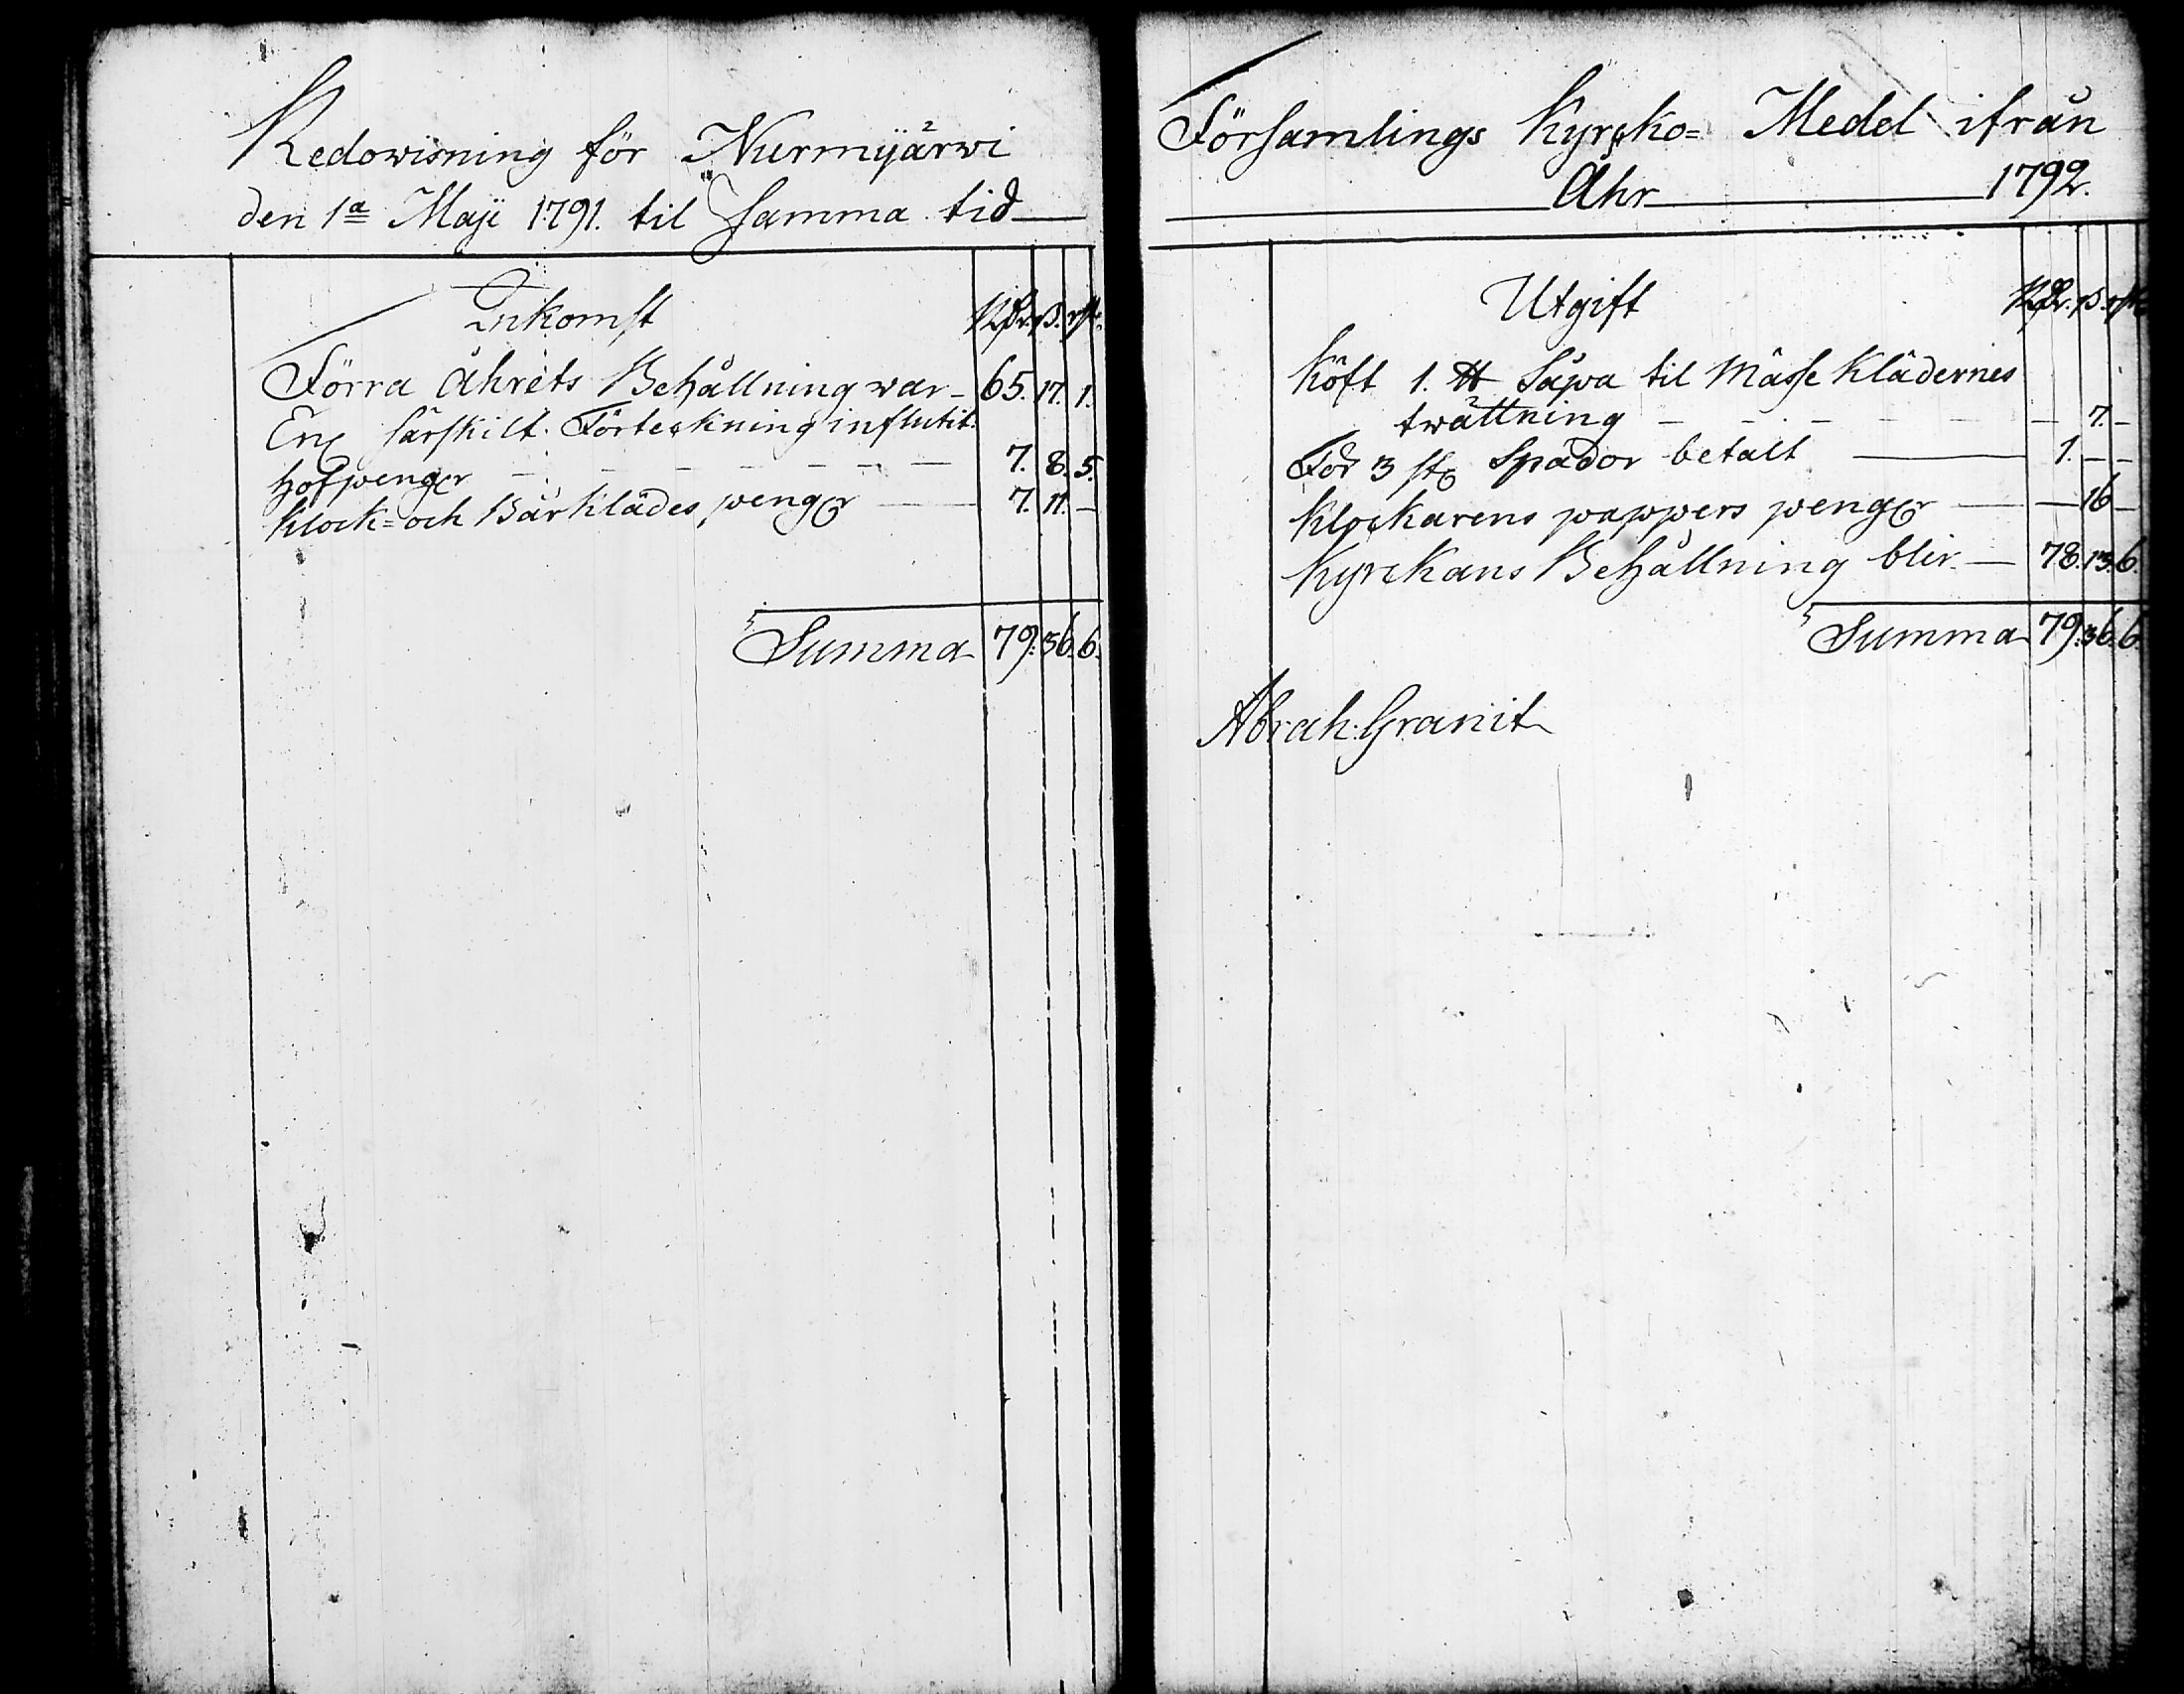 Redowisning för Nurmijärwi
den 1a Maji 1791. til samma tid
Inkomst Rdr. ß. rst.
Förra åhrets Behållning war 65. 17. 1.
Enl. särskilt Förteckning influtit.
Hofpenger 7. 8. 5.
Klock- och Bårklädes penger 7. 11. —
Summa 79. 36. 6.
Församlings Kyrcko= Medel ifrån
Åhr 1792.
Utgift Rdr. ß. rst.
Köft 1. ℔ Såpa til Mässe Klädernes
twättning — 7. —
För 3 st. Spador betalt 1. — —
Klockarens pappers penger — 16 —
Kyrckans Behållning blir 78. 13. 6.
Summa 79. 36. 6.
Abrah: Granit